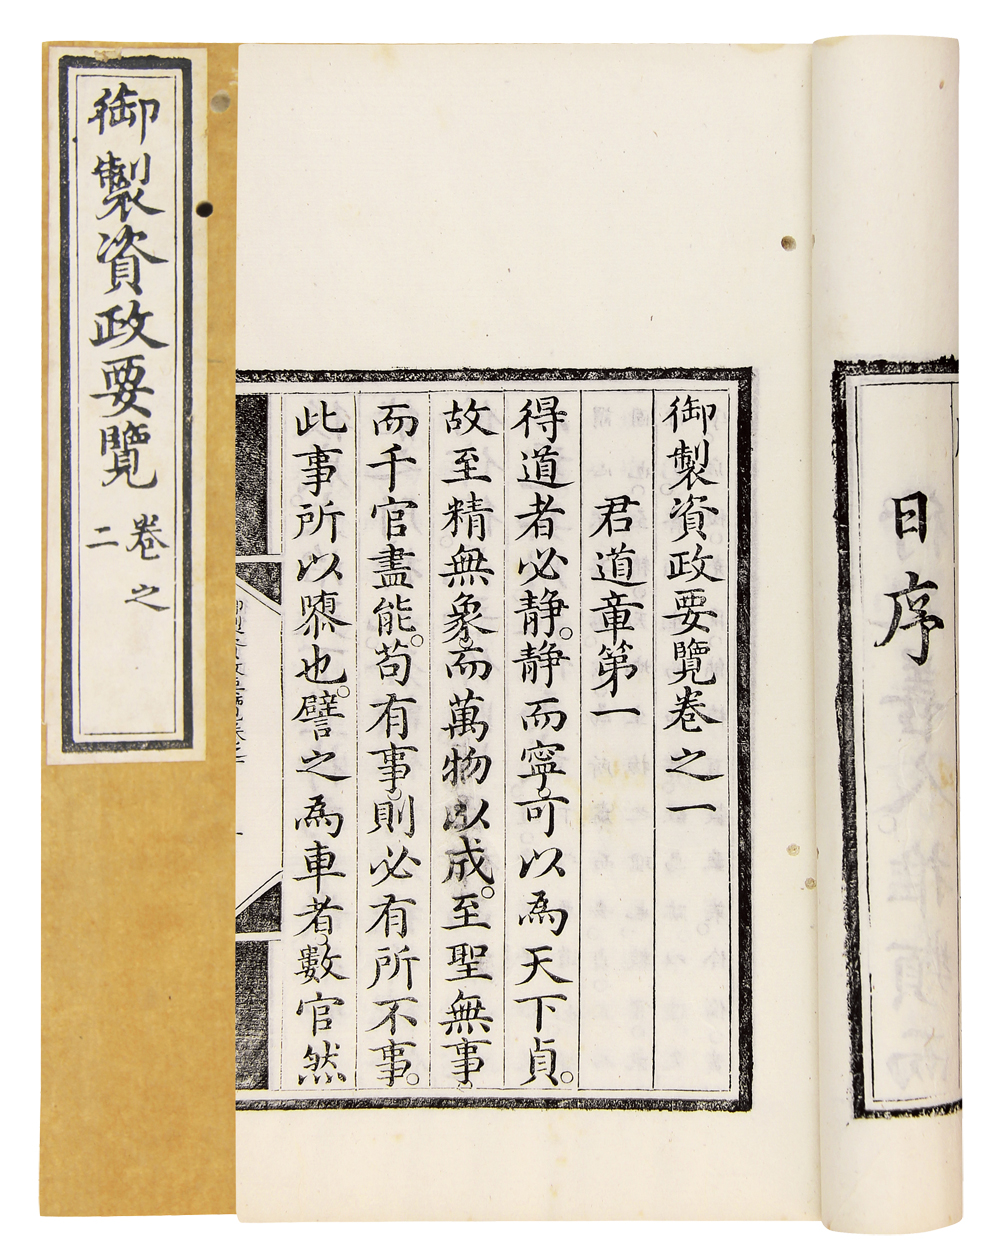 御製資政要覽
卷之
二
目序
御製資政要覽卷之一
君道章第一
得道者必静。静而寧。可以為天下貞。
故至精無象。而萬物以成。至聖無事。
而千官盡能。苟有事。則必有所不事。
此事所以隳也。譬之為車者。數官然